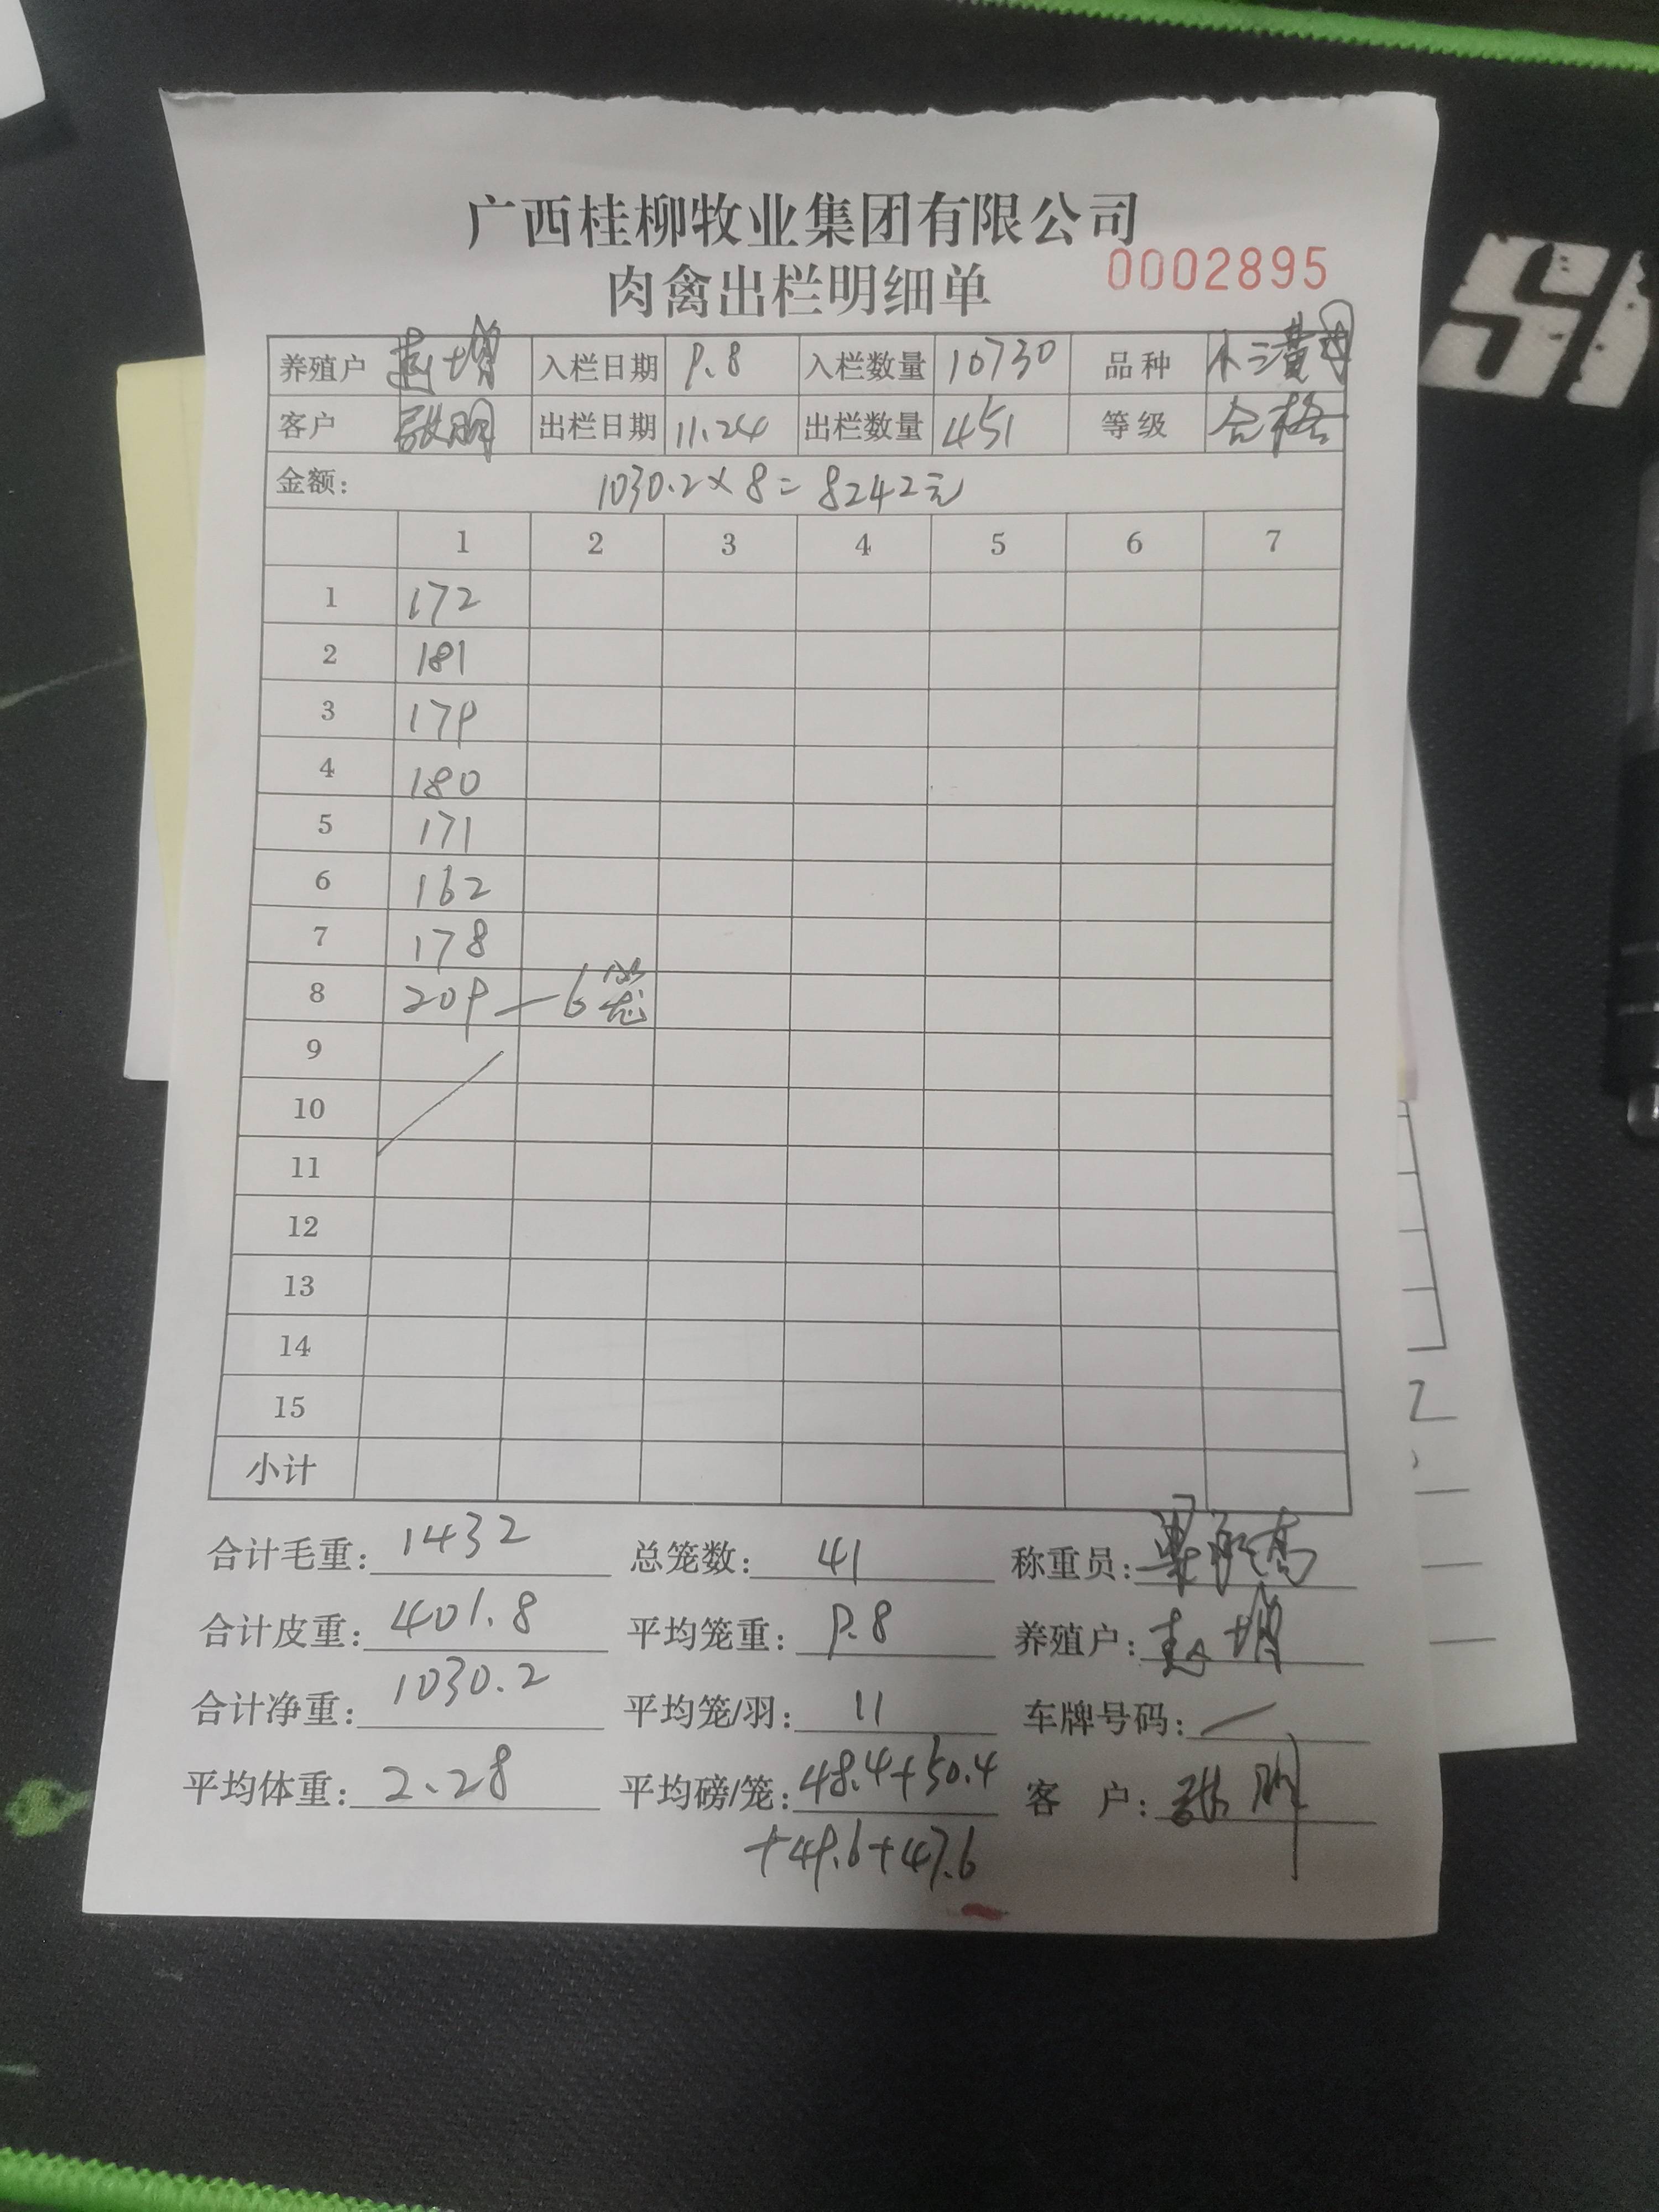 广西桂柳牧业集团有限公司
肉禽出栏明细单 0002895
养殖户 赵增 入栏日期 9.8 入栏数量 10730 品种 小三黄母
客户 张朋 出栏日期 11.24 出栏数量 451 等级 合格
金额: 1030.2×8=8242元
1 2 3 4 5 6 7
1 172
2 181
3 179
4 180
5 171
6 162
7 178
8 209—6笼
9
10
11
12
13
14
15
小计
合计毛重: 1432 总笼数: 41 称重员:
合计皮重: 401.8 平均笼重: 9.8 养殖户: 赵增
合计净重: 1030.2 平均笼/羽: 11 车牌号码: /
平均体重: 2.28 平均磅/笼: 48.4+50.4 客户: 张朋
+49.6+47.6